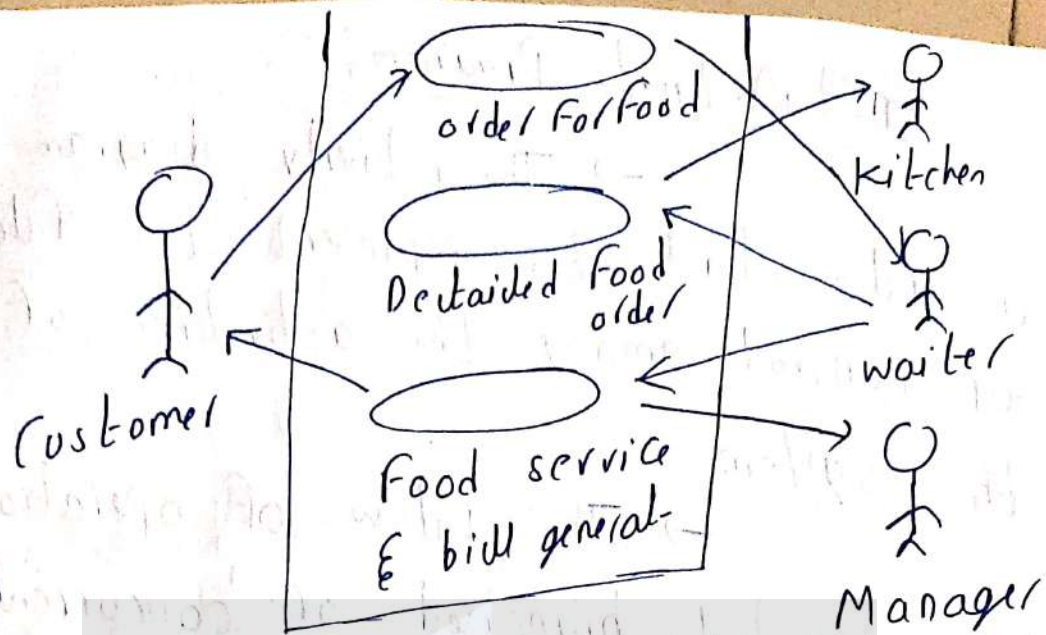 order For Food
Kitchen
Dectaided Food
order
waiter
Customer
Food service
& bill general-
Manager